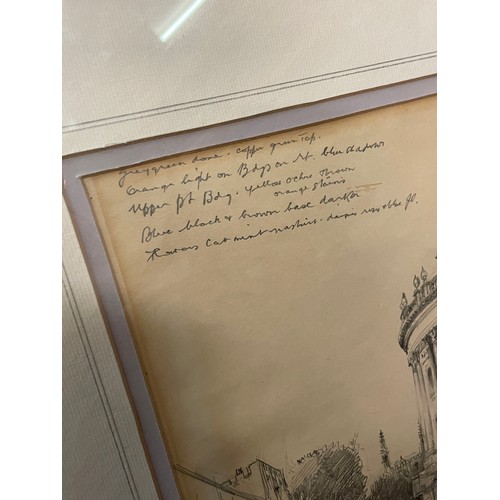 grey green dome - copper green top.
Orange light on Bdgs on rt. blue shadows
Upper pt Bdg. yellow ochre brown
orange stains
Blue black & brown base darker
Cat mint